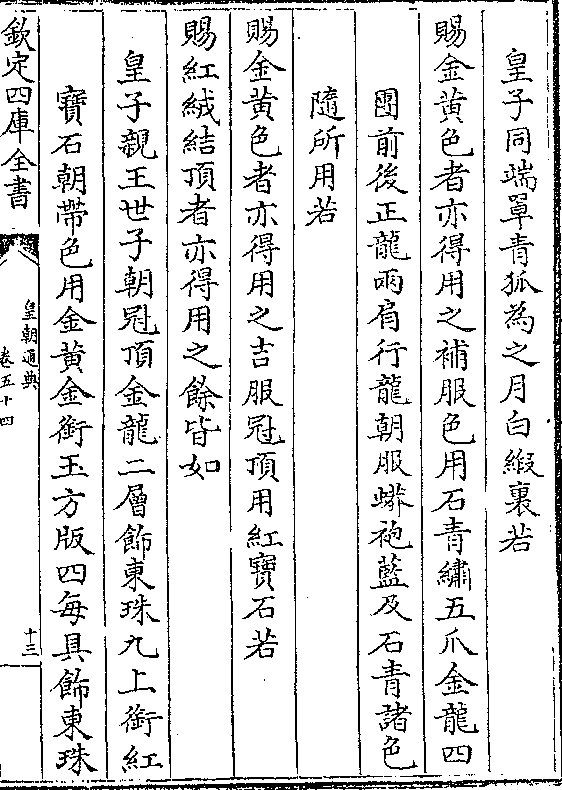 皇子同端罩青狐為之月白緞裏若
賜金黃色者亦得用之補服色用石青繡五爪金龍四
團前後正龍兩肩行龍朝服蟒袍藍及石青諸色
隨所用若
賜金黃色者亦得用之吉服冠頂用紅寶石若
賜紅絨結頂者亦得用之餘皆如
皇子親王世子朝冠頂金龍二層飾東珠九上銜紅
寶石朝帶色用金黃金銜玉方版四每具飾東珠
欽定四庫全書
皇朝通典
卷五十四
十三